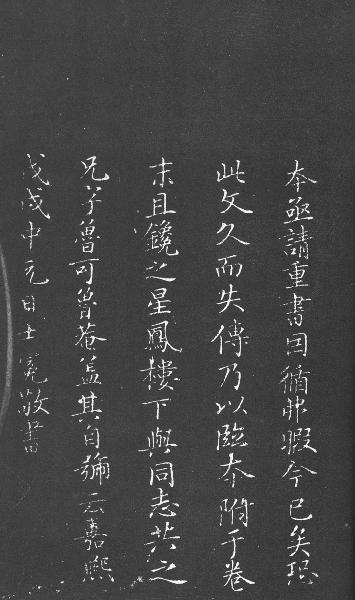 本亟請重書因循弗暇今已矣恐
此文久而失傳乃以臨本附于卷
末且鑱之星鳳樓下與同志共之
兄子曾可曾菴蓋其自號云嘉熙
戊戌中元日士冕敬書